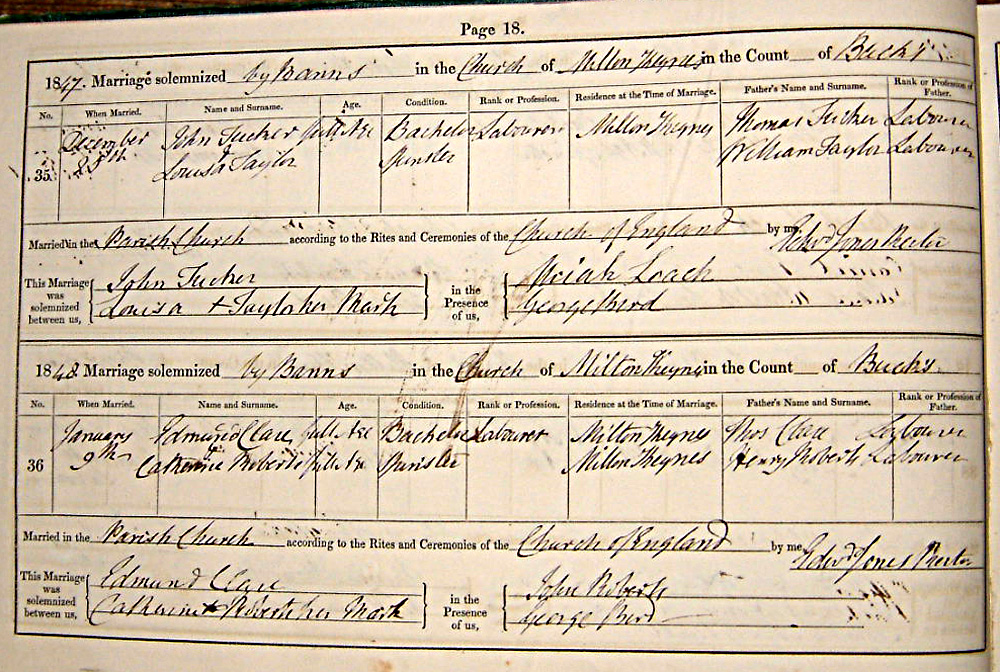 Page 18.
1847. Marriage solemnized by Banns in the Church of Milton Keynes in the Count of Bucks
No. When Married. Name and Surname. Age. Condition. Rank or Profession. Residence at the Time of Marriage. Father's Name and Surname. Rank or Profession of Father.
December John Tucker full Age Bachelor Labourer Milton Keynes Thomas Tucker Labourer
35 25th Louisa Taylor William Taylor Labourer
Married in the Parish Church according to the Rites and Ceremonies of the Church of England by me, Edwd Jones Rector
This Marriage was solemnized between us, John Tucker in the Presence of us,
Louisa + Taylor her Mark George Bird
1848 Marriage solemnized by Banns in the Church of Milton Keynes in the Count of Bucks.
No. When Married. Name and Surname. Age. Condition. Rank or Profession. Residence at the Time of Marriage. Father's Name and Surname. Rank or Profession of Father.
January Edmund Clare full Age Bachelor Labourer Milton Keynes Thos Clare Labourer
36 9th Catherine Roberts full Age Milton Keynes Henry Roberts Labourer
Married in the Parish Church according to the Rites and Ceremonies of the Church of England by me, Edwd Jones Rector
This Marriage was solemnized between us, Edmund Clare in the Presence of us, John Roberts
Catherine + Roberts her Mark George Bird